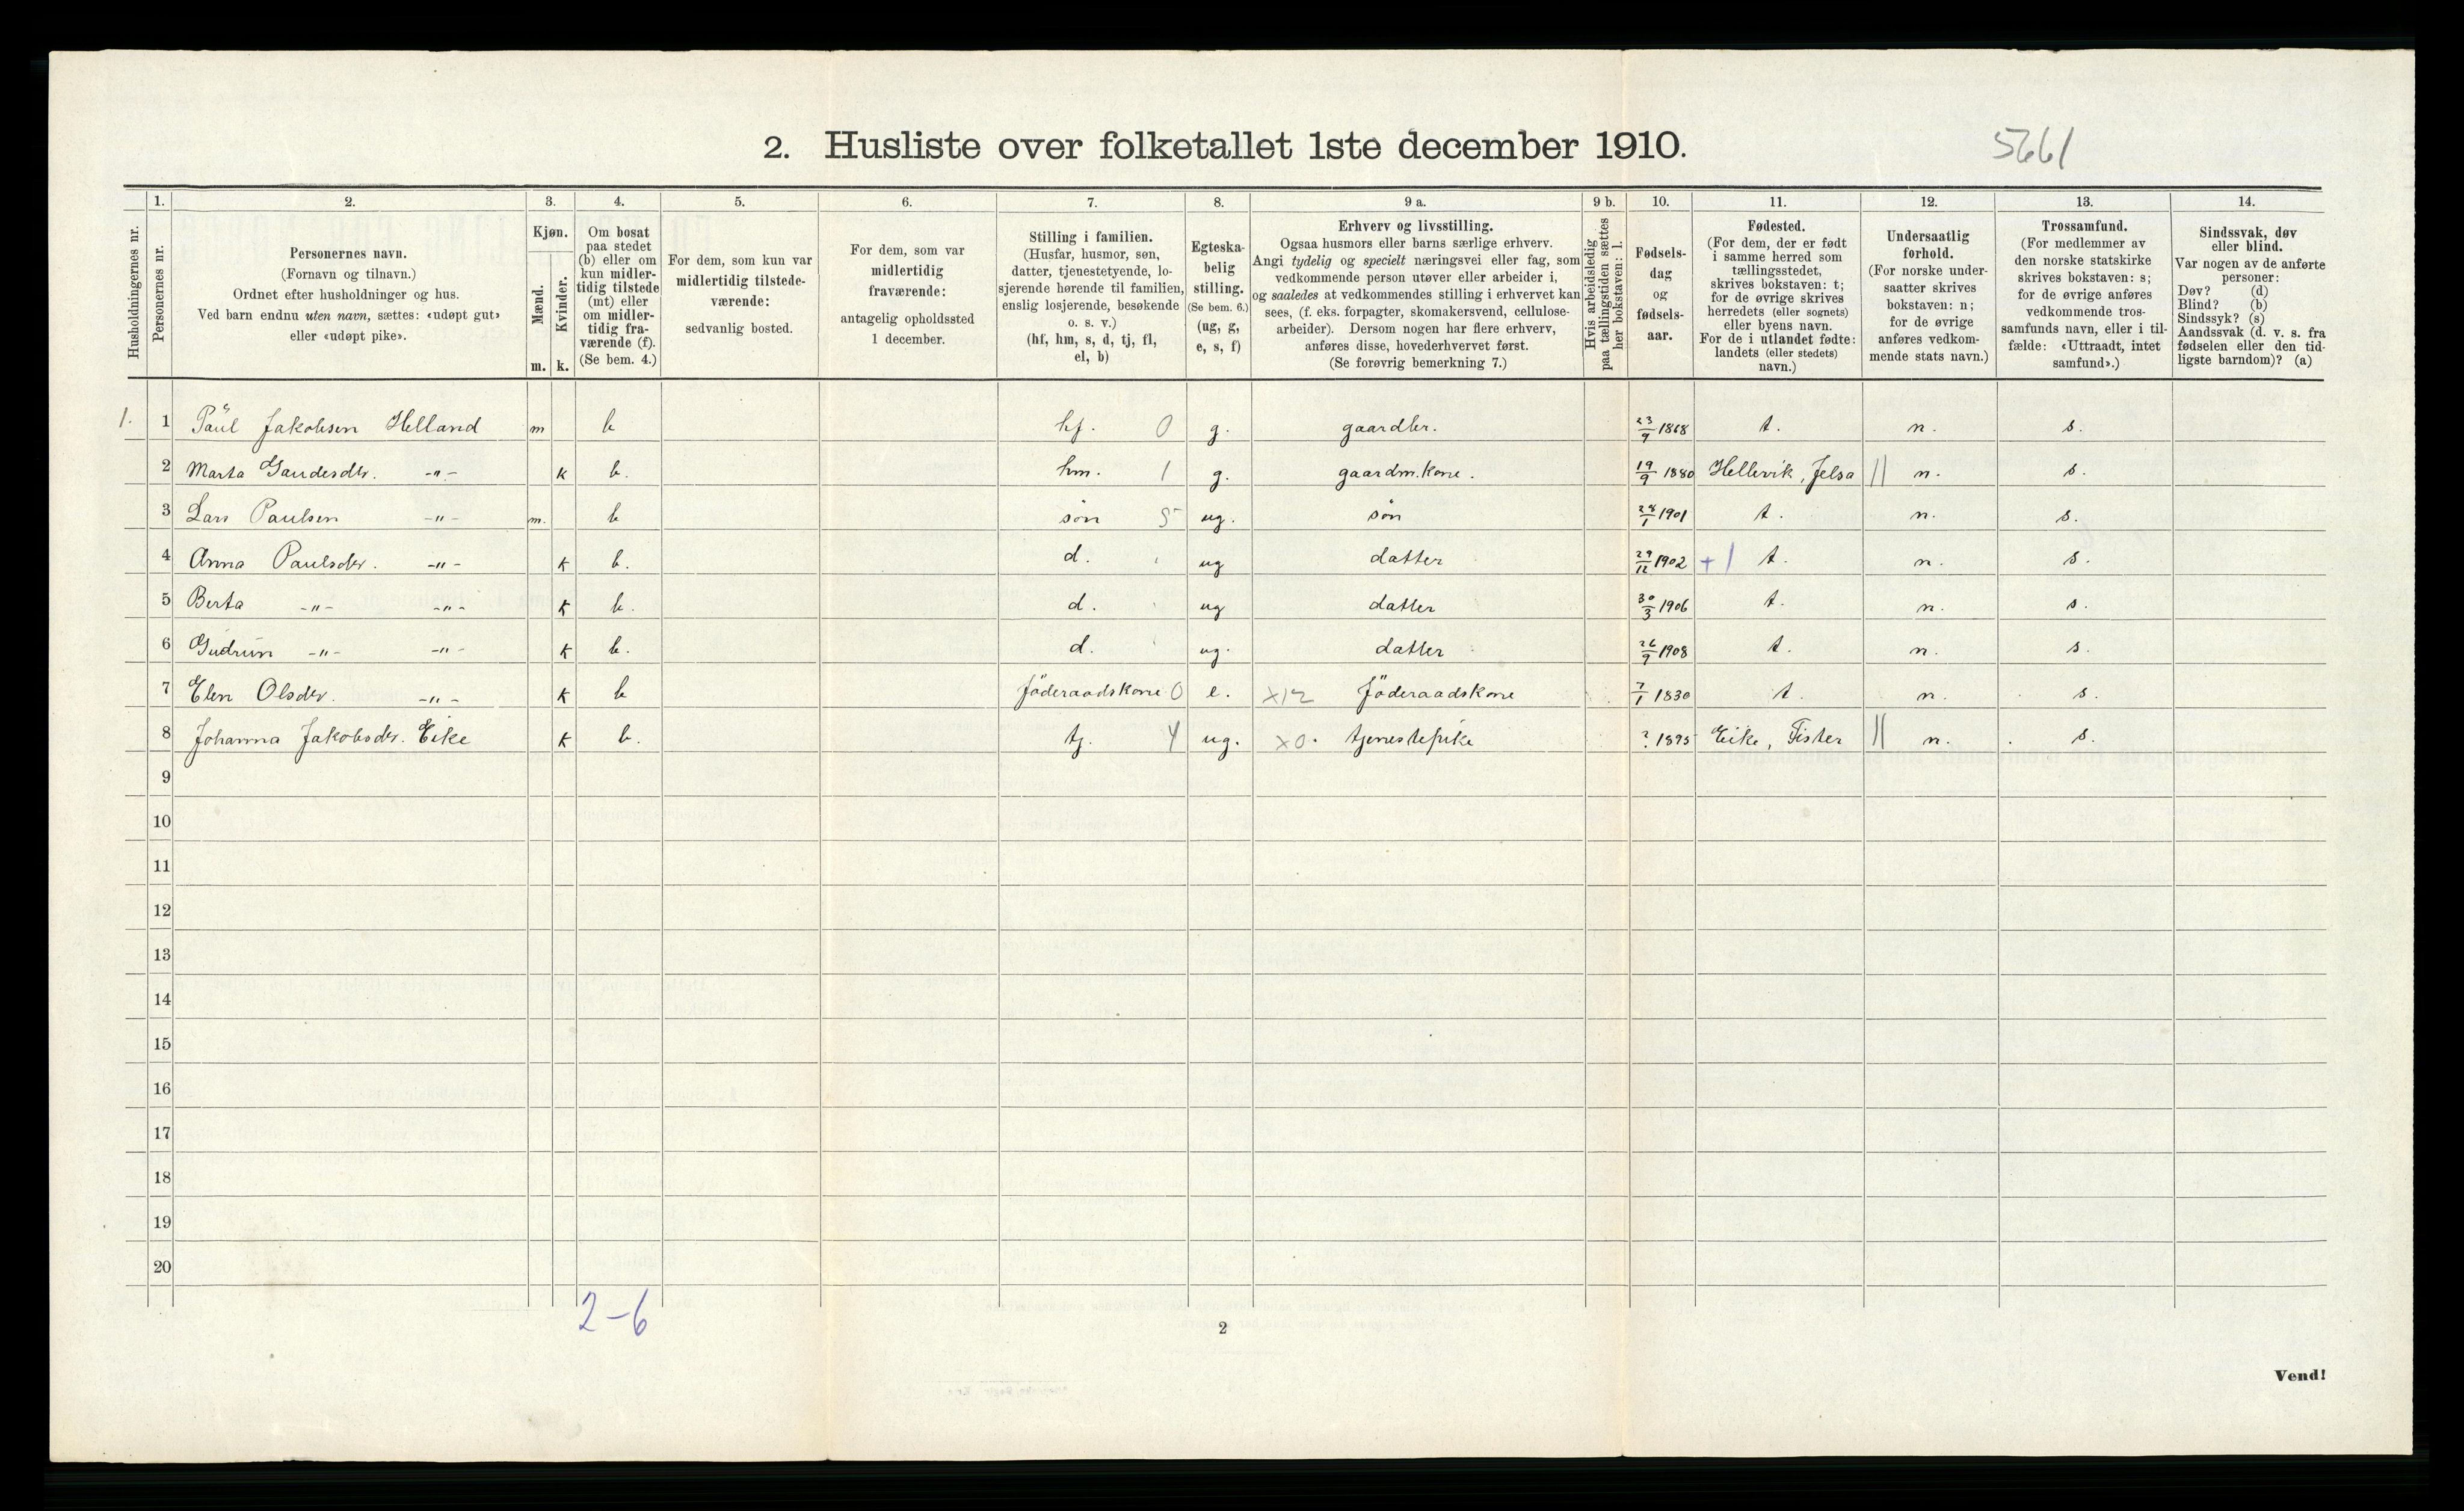 2. Husliste over folketallet 1ste december 1910.
5661
Husholdningernes nr.
1.
Personernes nr.
2.
Personernes navn.
(Fornavn og tilnavn.)
Ordnet efter husholdninger og hus.
Ved barn endnu uten navn, sættes: «udøpt gut»
eller «udøpt pike».
3.
Kjøn.
Mænd.
Kvinder.
m. k.
4.
Om bosat
paa stedet
(b) eller om
kun midler-
tidig tilstede
(mt) eller
om midler-
tidig fra-
værende (f).
(Se bem. 4.)
5.
For dem, som kun var
midlertidig tilstede-
værende:
sedvanlig bosted.
6.
For dem, som var
midlertidig
fraværende:
antagelig opholdssted
1 december.
7.
Stilling i familien.
(Husfar, husmor, søn,
datter, tjenestetyende, lo-
sjerende hørende til familien,
enslig losjerende, besøkende
o. s. v.)
(hf, hm, s, d, tj, fl,
el, b)
8.
Egteska-
belig
stilling.
(Se bem. 6.)
(ug, g,
e, s, f)
9 a.
Erhverv og livsstilling.
Ogsaa husmors eller barns særlige erhverv.
Angi tydelig og specielt næringsvei eller fag, som
vedkommende person utøver eller arbeider i,
og saaledes at vedkommendes stilling i erhvervet kan
sees, (f. eks. forpagter, skomakersvend, cellulose-
arbeider). Dersom nogen har flere erhverv,
anføres disse, hovederhvervet først.
(Se forøvrig bemerkning 7.)
9 b.
Hvis arbeidsledig
paa tællingstiden sættes
her bokstaven: l.
10.
Fødsels-
dag
og
fødsels-
aar.
11.
Fødested.
(For dem, der er født
i samme herred som
tællingsstedet,
skrives bokstaven: t;
for de øvrige skrives
herredets (eller sognets)
eller byens navn.
For de i utlandet fødte:
landets (eller stedets)
navn.)
12.
Undersaatlig
forhold.
(For norske under-
saatter skrives
bokstaven: n;
for de øvrige
anføres vedkom-
mende stats navn.)
13.
Trossamfund.
(For medlemmer av
den norske statskirke
skrives bokstaven: s;
for de øvrige anføres
vedkommende tros-
samfunds navn, eller i til-
fælde: «Uttraadt, intet
samfund».)
14.
Sindssvak, døv
eller blind.
Var nogen av de anførte
personer:
Døv? (d)
Blind? (b)
Sindssyk? (s)
Aandssvak (d. v. s. fra
fødselen eller den tid-
ligste barndom)? (a)
1. 1 Paul Jakobsen Helland m b hf. 0 g. gaardbr. 23/9 1868 t. n. s.
2 Marta Gaudesdtr. -"- k b. hm. 1 g. gaardm.kone. 19/9 1880 Hellevik, Jelsa || n. s.
3 Lars Paulsen -"- m. b søn 5 ug. søn 28/1 1901 t. n. s.
4 Anna Paulsdtr. -"- k b. d. ug datter 29/12 1902 +1 t. n. s.
5 Berta -"- -"- k b. d. ug datter 30/3 1906 t. n. s.
6 Gudrun -"- -"- k b. d. ug. datter 26/9 1908 t. n. s.
7 Elen Olsdtr. -"- k b föderaadskone 0 e. x12 föderaadskone 7/1 1830 t. n. s.
8 Johanna Jakobsdtr. Eike k b. tj. 4 ug. x0. tjenestepike ? 1895 Eike, Fister || n. s.
9
10
11
12
13
14
15
16
17
18
19
20
2-6
2
Vend!